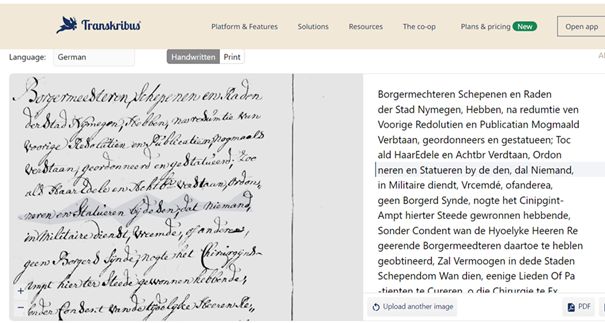 Transkribus
Platform & Features
Solutions
Resources
The co-op
Plans & pricing
New
Open app
Language:
German
Handwritten
Print
Borgermeesteren, Schepenen en Raden
der Stad Nymegen, Hebben, na van
voorige Resolutien en Publicatien, Nogmaals
verstaan, geordonneerd en gestatueerd; Zoo
als Haar Edele en Achtb: verstaan, Ordon,
neren en Statueren by deesen, dat Niemand,
in Militaire dienst, Vreemde, of andere,
geen Borgers Synde; nogte het Chirurgyns-
Ampt hier ter Steede gewonnen hebbende,
Sonder Consent van de Heeren Re,
Borgermechteren Schepenen en Raden
der Stad Nymegen, Hebben, na redumtie ven
Voorige Redolutien en Publicatian Mogmaald
Verbtaan, geordonneers en gestatueen; Toc
ald HaarEdele en Achtbr Verdtaan, Ordon
neren en Statueren by de den, dal Niemand,
in Militare diendt, Vrcemdé, ofanderea,
geen Borgerd Synde, nogte het Cinipgint-
Ampt hierter Steede gewonnen hebbende,
Sonder Condent wan de Hyoelyke Heeren Re
geerende Borgermeedteren daartoe te heblen
geobtineerd, Zal Vermoogen in dede Staden
Schependom Wan dien, eenige Lieden Of Pa
-tienten te Cureren, o die Chirurgie te Ex
Upload another image
PDF